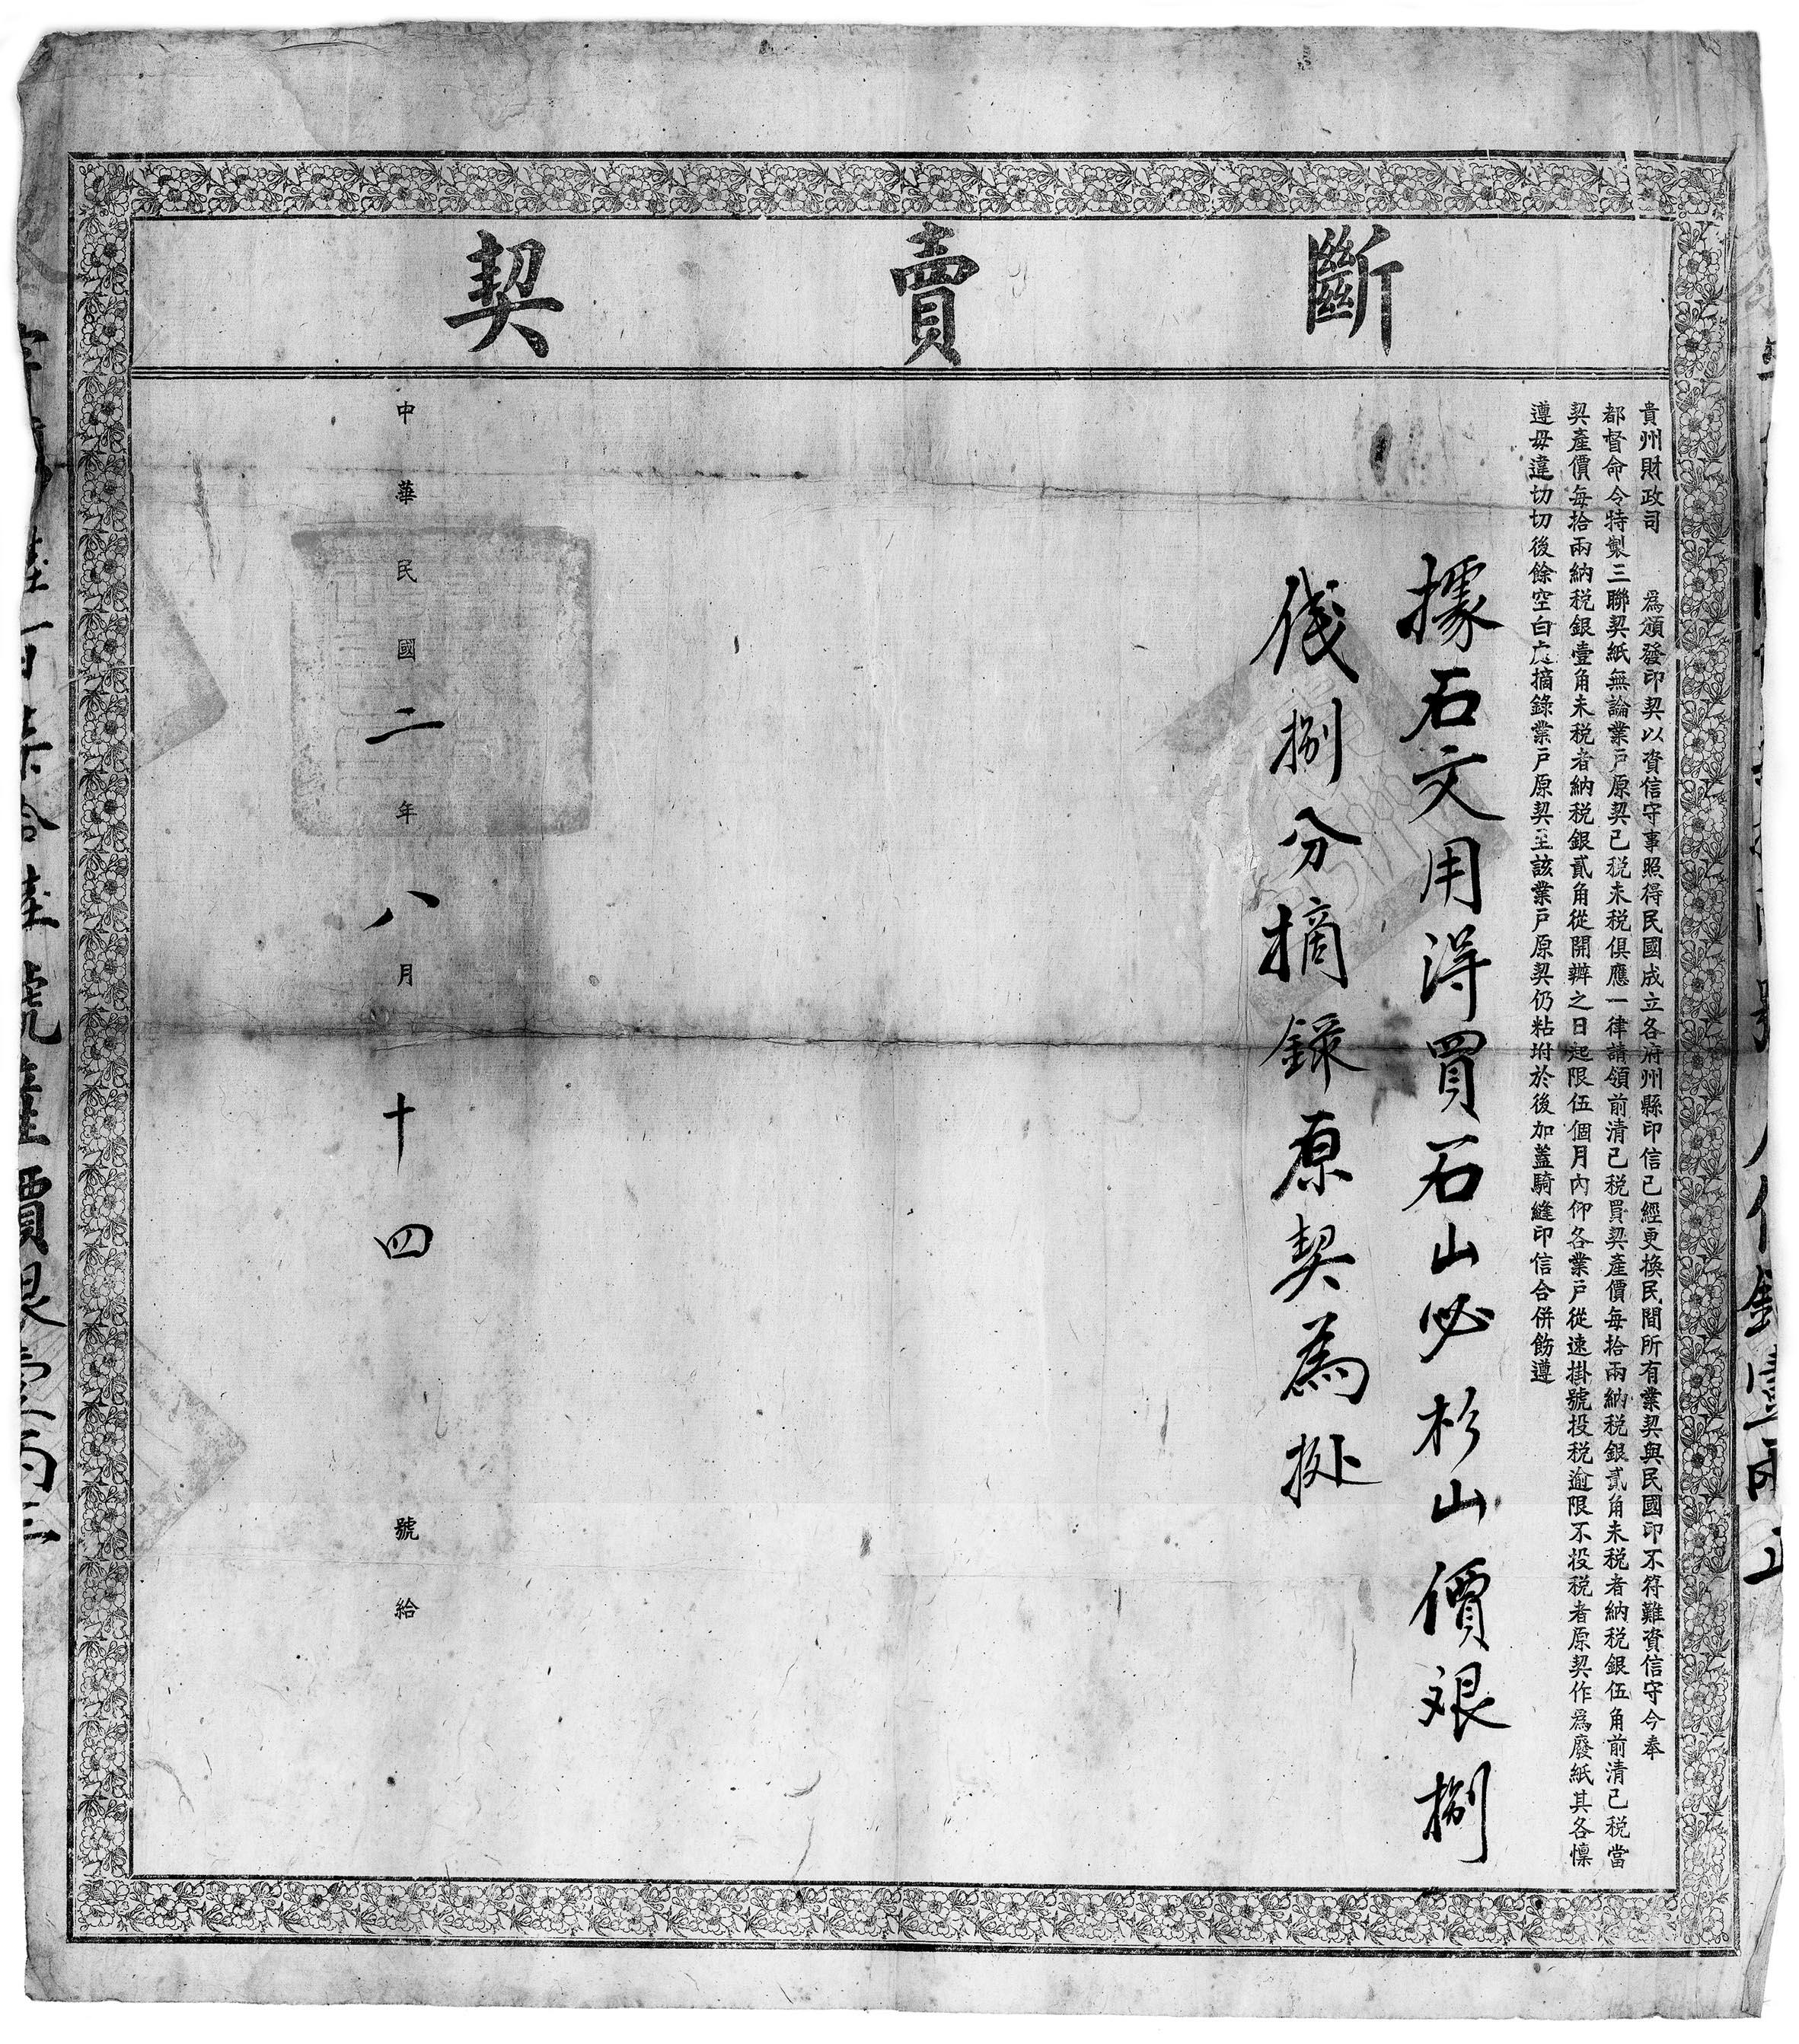 斷賣契
貴州財政司 爲頒發印契以資信守事照得民國成立各府州縣印信已經更換民間所有業契與民國印不符難資信守今奉
都督命令特製三聯契紙無論業戶原契已税未税俱應一律請領前清已税買契產價每拾兩納税銀貳角未税者納税銀伍角前清已税當
契產價每拾兩納税銀壹角未税者納税銀貳角從開辦之日起限伍個月內仰各業戶從速掛號投税逾限不投税者原契作爲廢紙其各懍
遵毋違切切後餘空白處摘錄業戶原契至該業戶原契仍粘坿於後加蓋騎縫印信合併飭遵
據石文用得買石山必杉山價艮捌
伐捌分摘錄原契為処
中華民國二年八月十四 號給